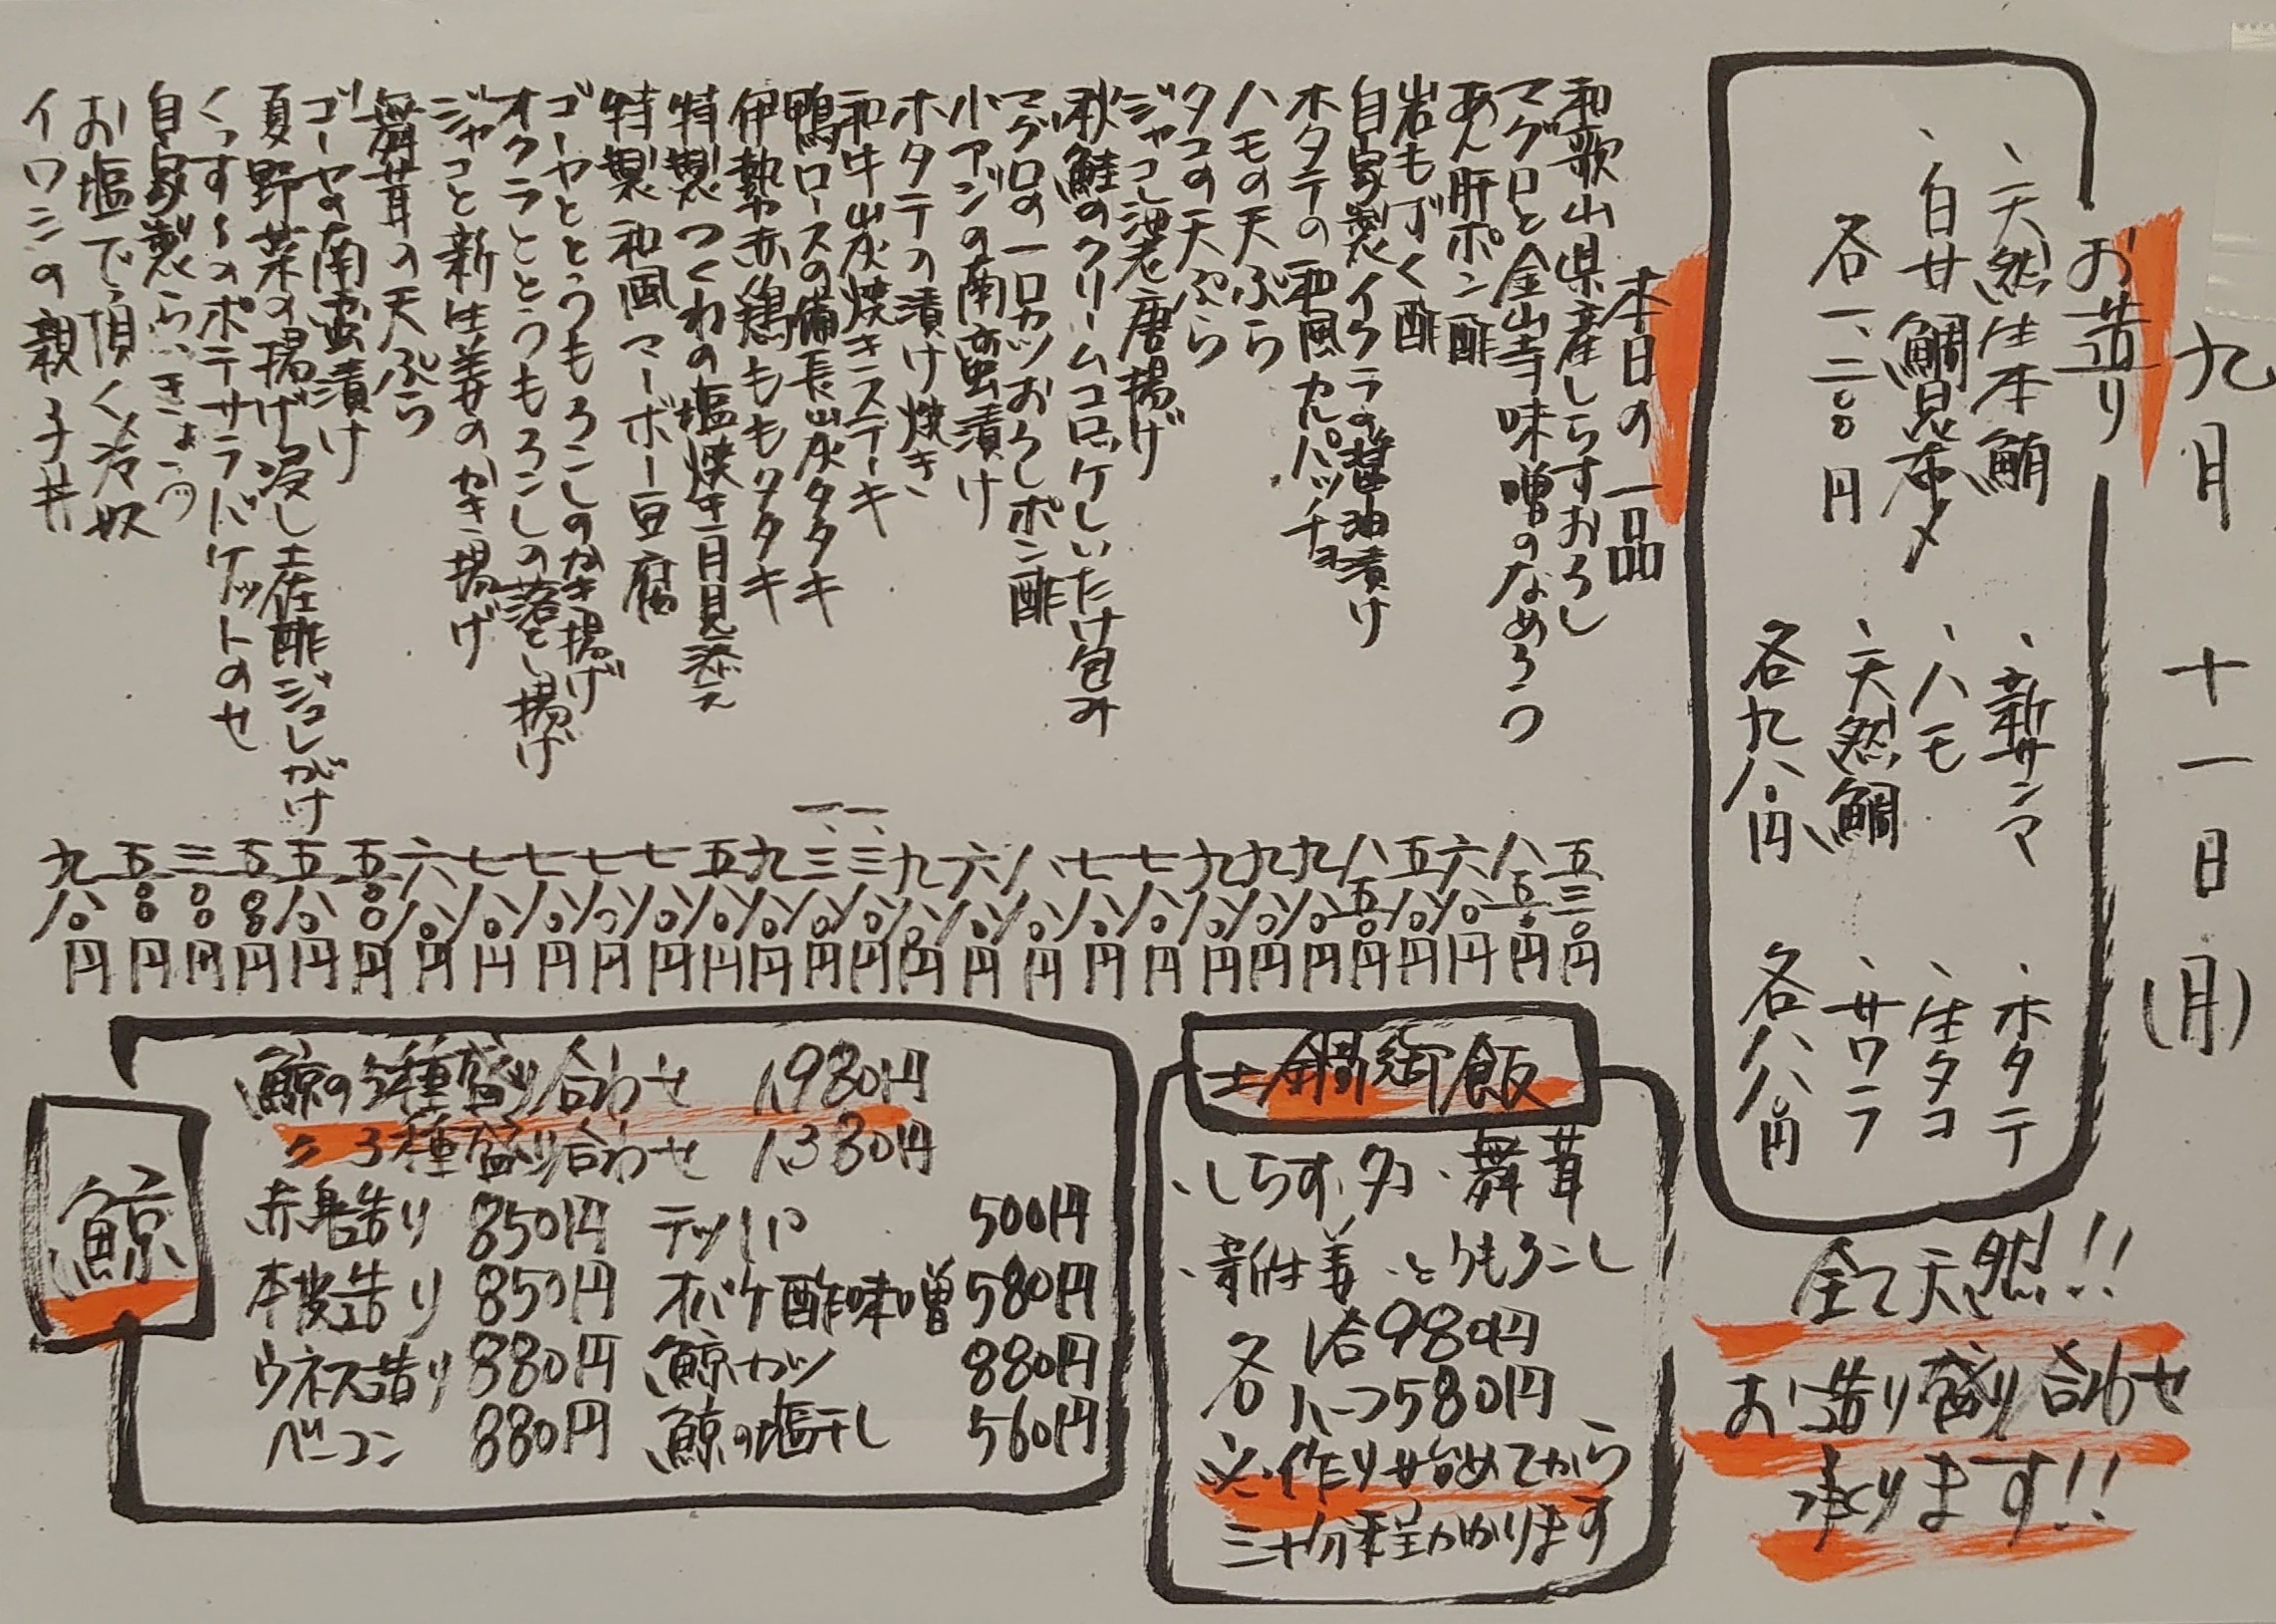 九月 十一日(月)
お造り
、天然生本鮪
、白甘鯛昆布〆
各一、二〇〇円
、新サンマ
、ハモ
、天然鯛
各九八〇円
、ホタテ
、生タコ
、サワラ
各八八〇円
全て天然!!
お造り盛り合わせ
承ります!!
本日の一品
和歌山県産しらすおろし 五三〇円
マグロと金山寺味噌のなめろう 八五〇円
あん肝ポン酢 六八〇円
岩もずく酢 五八〇円
自家製イクラの醤油漬け 八五〇円
ホタテの和風カルパッチョ 九八〇円
ハモの天ぷら 九八〇円
タコの天ぷら 九八〇円
ジャコし酒老唐揚げ 七八〇円
秋鮭のクリームコロッケしいたけ包み 七八〇円
マグロの一口カツおろしポン酢 八八〇円
小アジの南蛮漬け 六八〇円
ホタテの漬け焼き 九八〇円
和牛炭焼きステーキ 一、三八〇円
鴨ロースの備長炭タタキ 一、三八〇円
伊勢赤鶏ももタタキ 九八〇円
特製つくねの塩焼き月見添え 五八〇円
特製和風マーボー豆腐 七八〇円
ゴーヤととうもろこしのかき揚げ 七八〇円
オクラととうもろこしの落とし揚げ 七八〇円
ジャコと新生姜のかき揚げ 七八〇円
舞茸の天ぷら 六八〇円
ゴーヤの南蛮漬け 五〇〇円
夏野菜の揚げ浸し土佐酢ジュレがけ 五八〇円
くっすんのポテサラバケットのせ 五〇〇円
自家製らっきょう 三〇〇円
お塩で頂く冷奴 五〇〇円
イワシの親子丼 九八〇円
土鍋御飯
、しらす、タコ、舞茸
、新生姜、とうもろこし
各 1合980円
各 ハーフ580円
※作り始めてから
三十分程かかります
鯨
鯨の5種盛り合わせ 1,980円
〃 3種盛り合わせ 1,380円
赤身造り 850円 テッパ 500円
本皮造り 850円 オバケ酢味噌 580円
ウネス造り 880円 鯨カツ 880円
ベーコン 880円 鯨の塩干し 560円